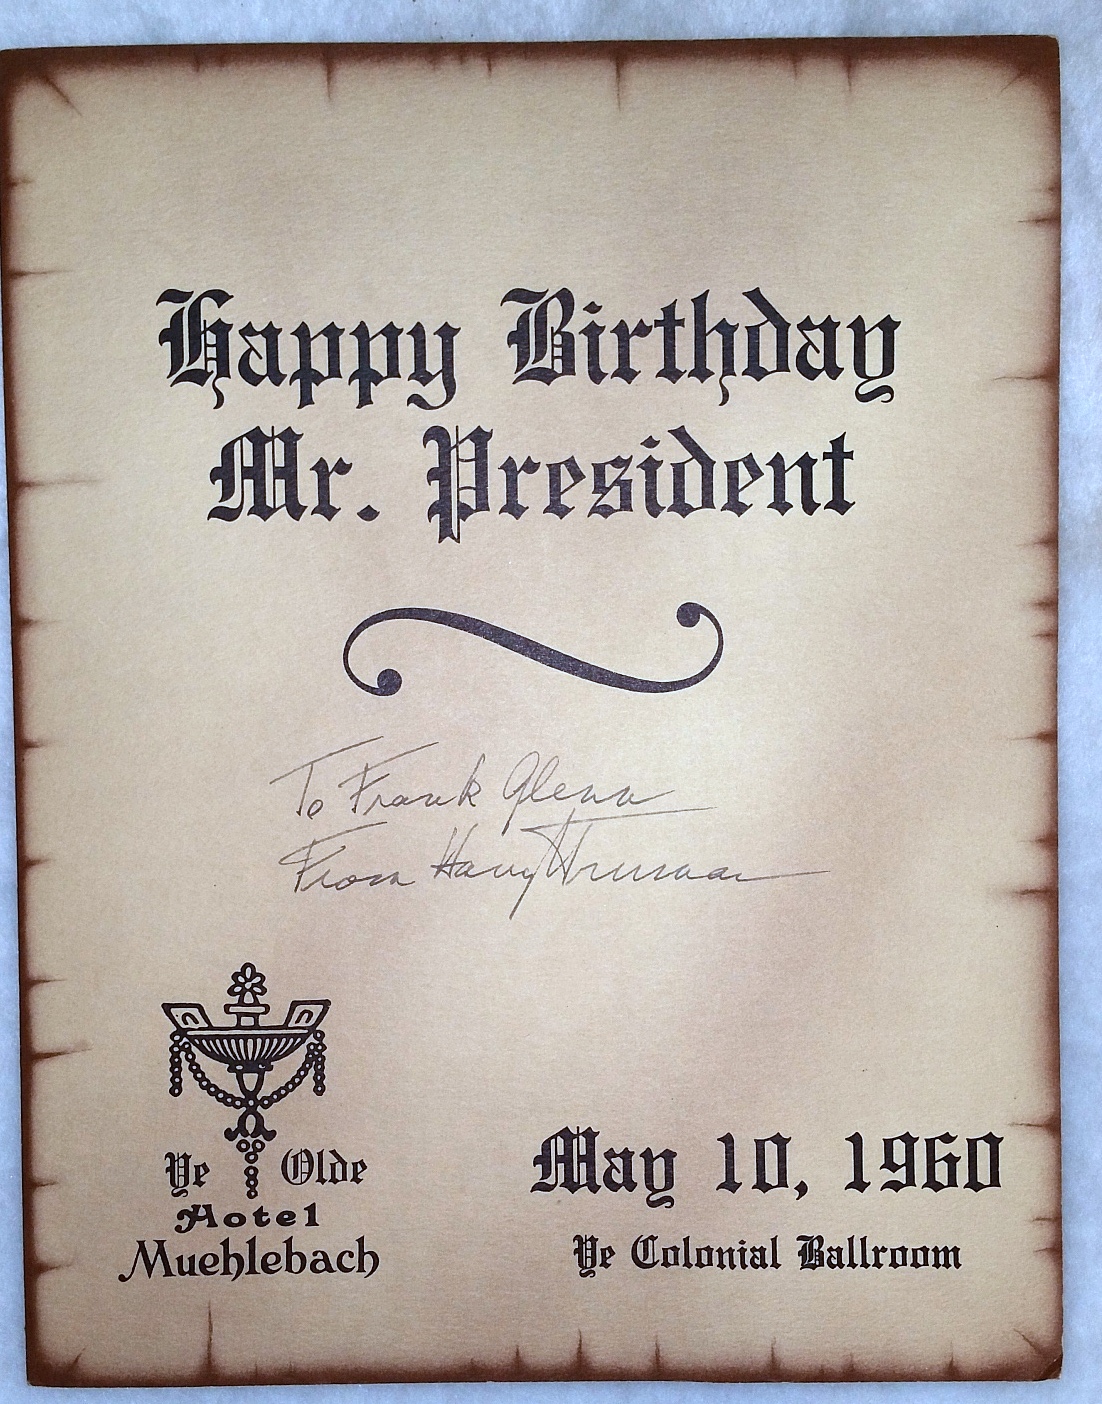 Happy Birthday
Mr. President
To Frank Glenn
From Harry Truman
Ye Olde
Hotel
Muehlebach
May 10, 1960
Ye Colonial Ballroom